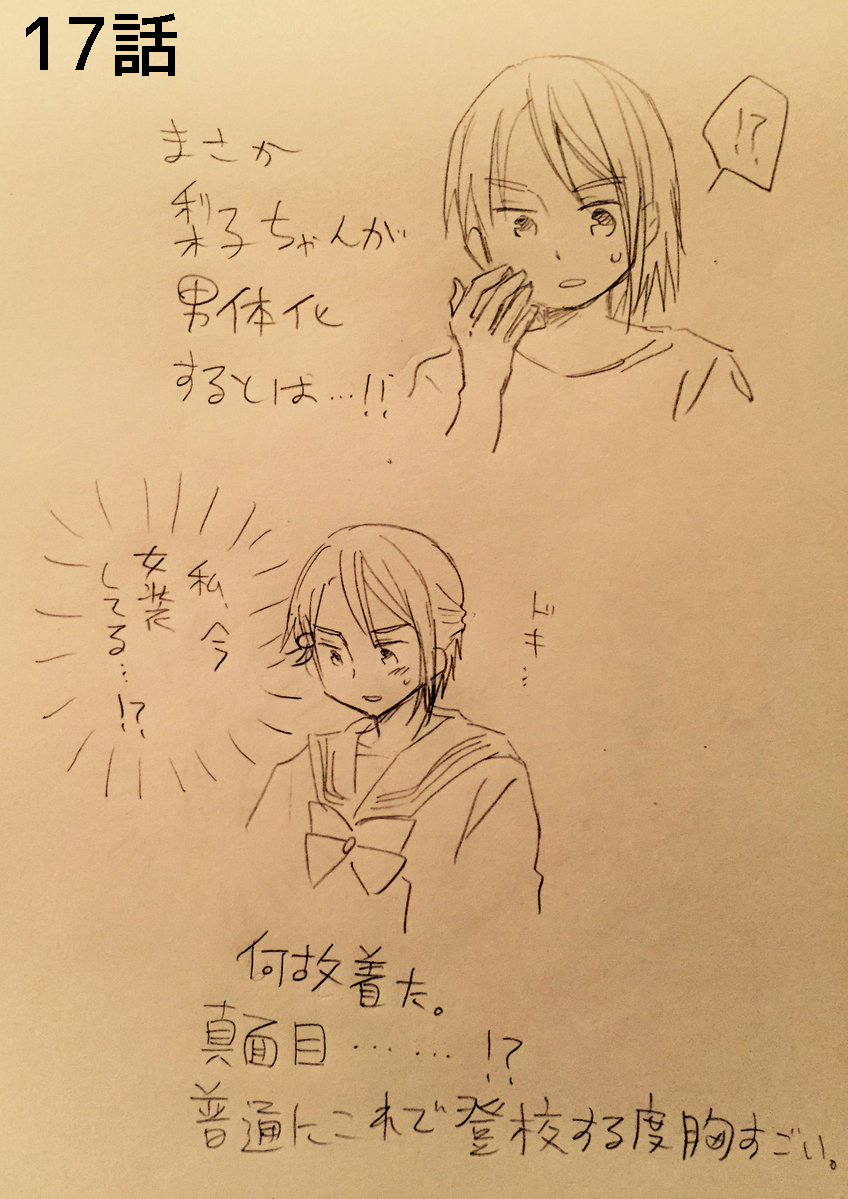 17話
まさか
梨子ちゃんが
男体化
するとは…!!
!?
私、今
女装
してる…!?
ドキ…
何故着た。
真面目……!?
普通にこれで登校する度胸すごい。